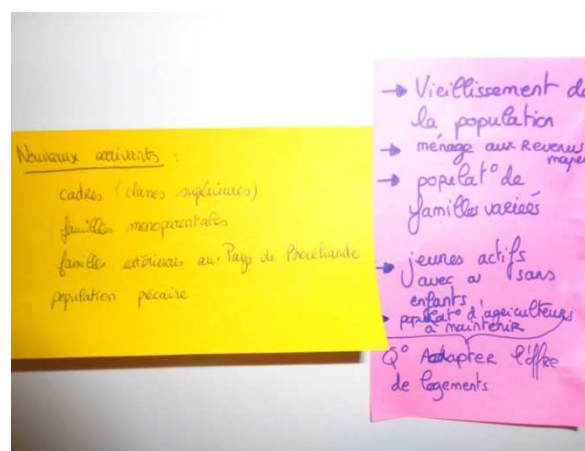 Nouveaux arrivants :
cadres (classes supérieures)
familles monoparentales
familles extérieures au Pays de Brocéliande
population pécaire
→ Vieillissement de
la population
→ ménage aux Revenus
→ populat° de
familles variées
→ jeunes actifs
avec ou sans
enfants
→ populat° d'agriculteurs
à maintenir
Q° Adapter l'offre
de logements